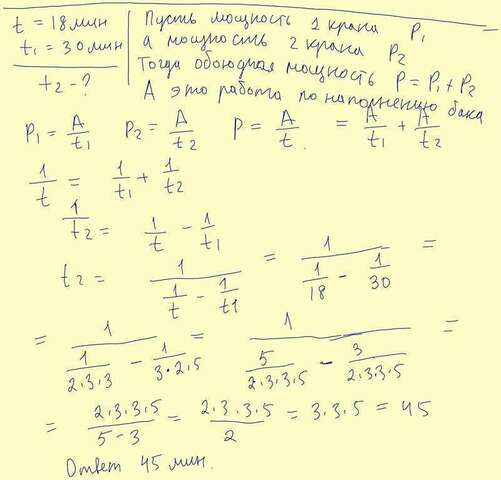 t = 18 мин
t₁ = 30 мин
t₂ - ?
Пусть мощность 1 крана P₁
а мощность 2 крана P₂
Тогда обоюдная мощность P = P₁ + P₂
А это работа по наполнению бака
P₁ = A/t₁ P₂ = A/t₂ P = A/t = A/t₁ + A/t₂
1/t = 1/t₁ + 1/t₂
1/t₂ = 1/t - 1/t₁
t₂ = 1/(1/t - 1/t1) = 1/(1/18 - 1/30) =
= 1/(1/2·3·3 - 1/3·2·5) = 1/(5/2·3·3·5 - 3/2·3·3·5) =
= 2·3·3·5/5-3 = 2·3·3·5/2 = 3·3·5 = 45
Ответ 45 мин.